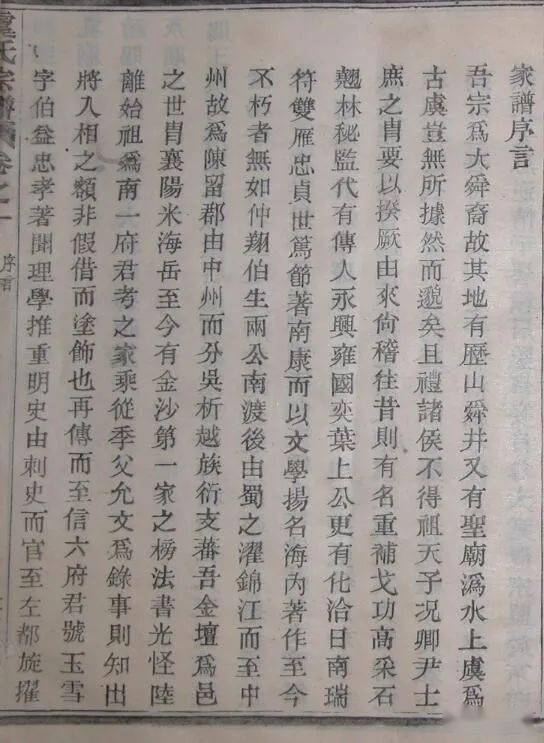 家譜序言
吾宗爲大舜裔故其地有歷山舜井又有聖廟溈水上虞爲
古虞豈無所據然而邈矣且禮諸侯不得祖天子况卿尹士
庶之胄要以揆厥由來尙稽往昔則有名重補戈功高采石
翹林秘監代有傳人永興雍國奕葉上公更有化洽日南瑞
符雙雁忠貞世篤節著南康而以文學揚名海內著作至今
不朽者無如仲翔伯生兩公南渡後由蜀之濯錦江而至中
州故爲陳留郡由中州而分吳析越族衍支蕃吾金壇爲邑
之世胄襄陽米海岳至今有金沙第一家之榜法書光怪陸
離始祖爲南一府君考之家乘從季父允文爲錄事則知出
將入相之額非假借而塗飾也再傳而至信六府君號玉雪
字伯益忠孝著聞理學推重明史由刺史而官至左都旋擢
虞氏宗譜 卷之一 序言